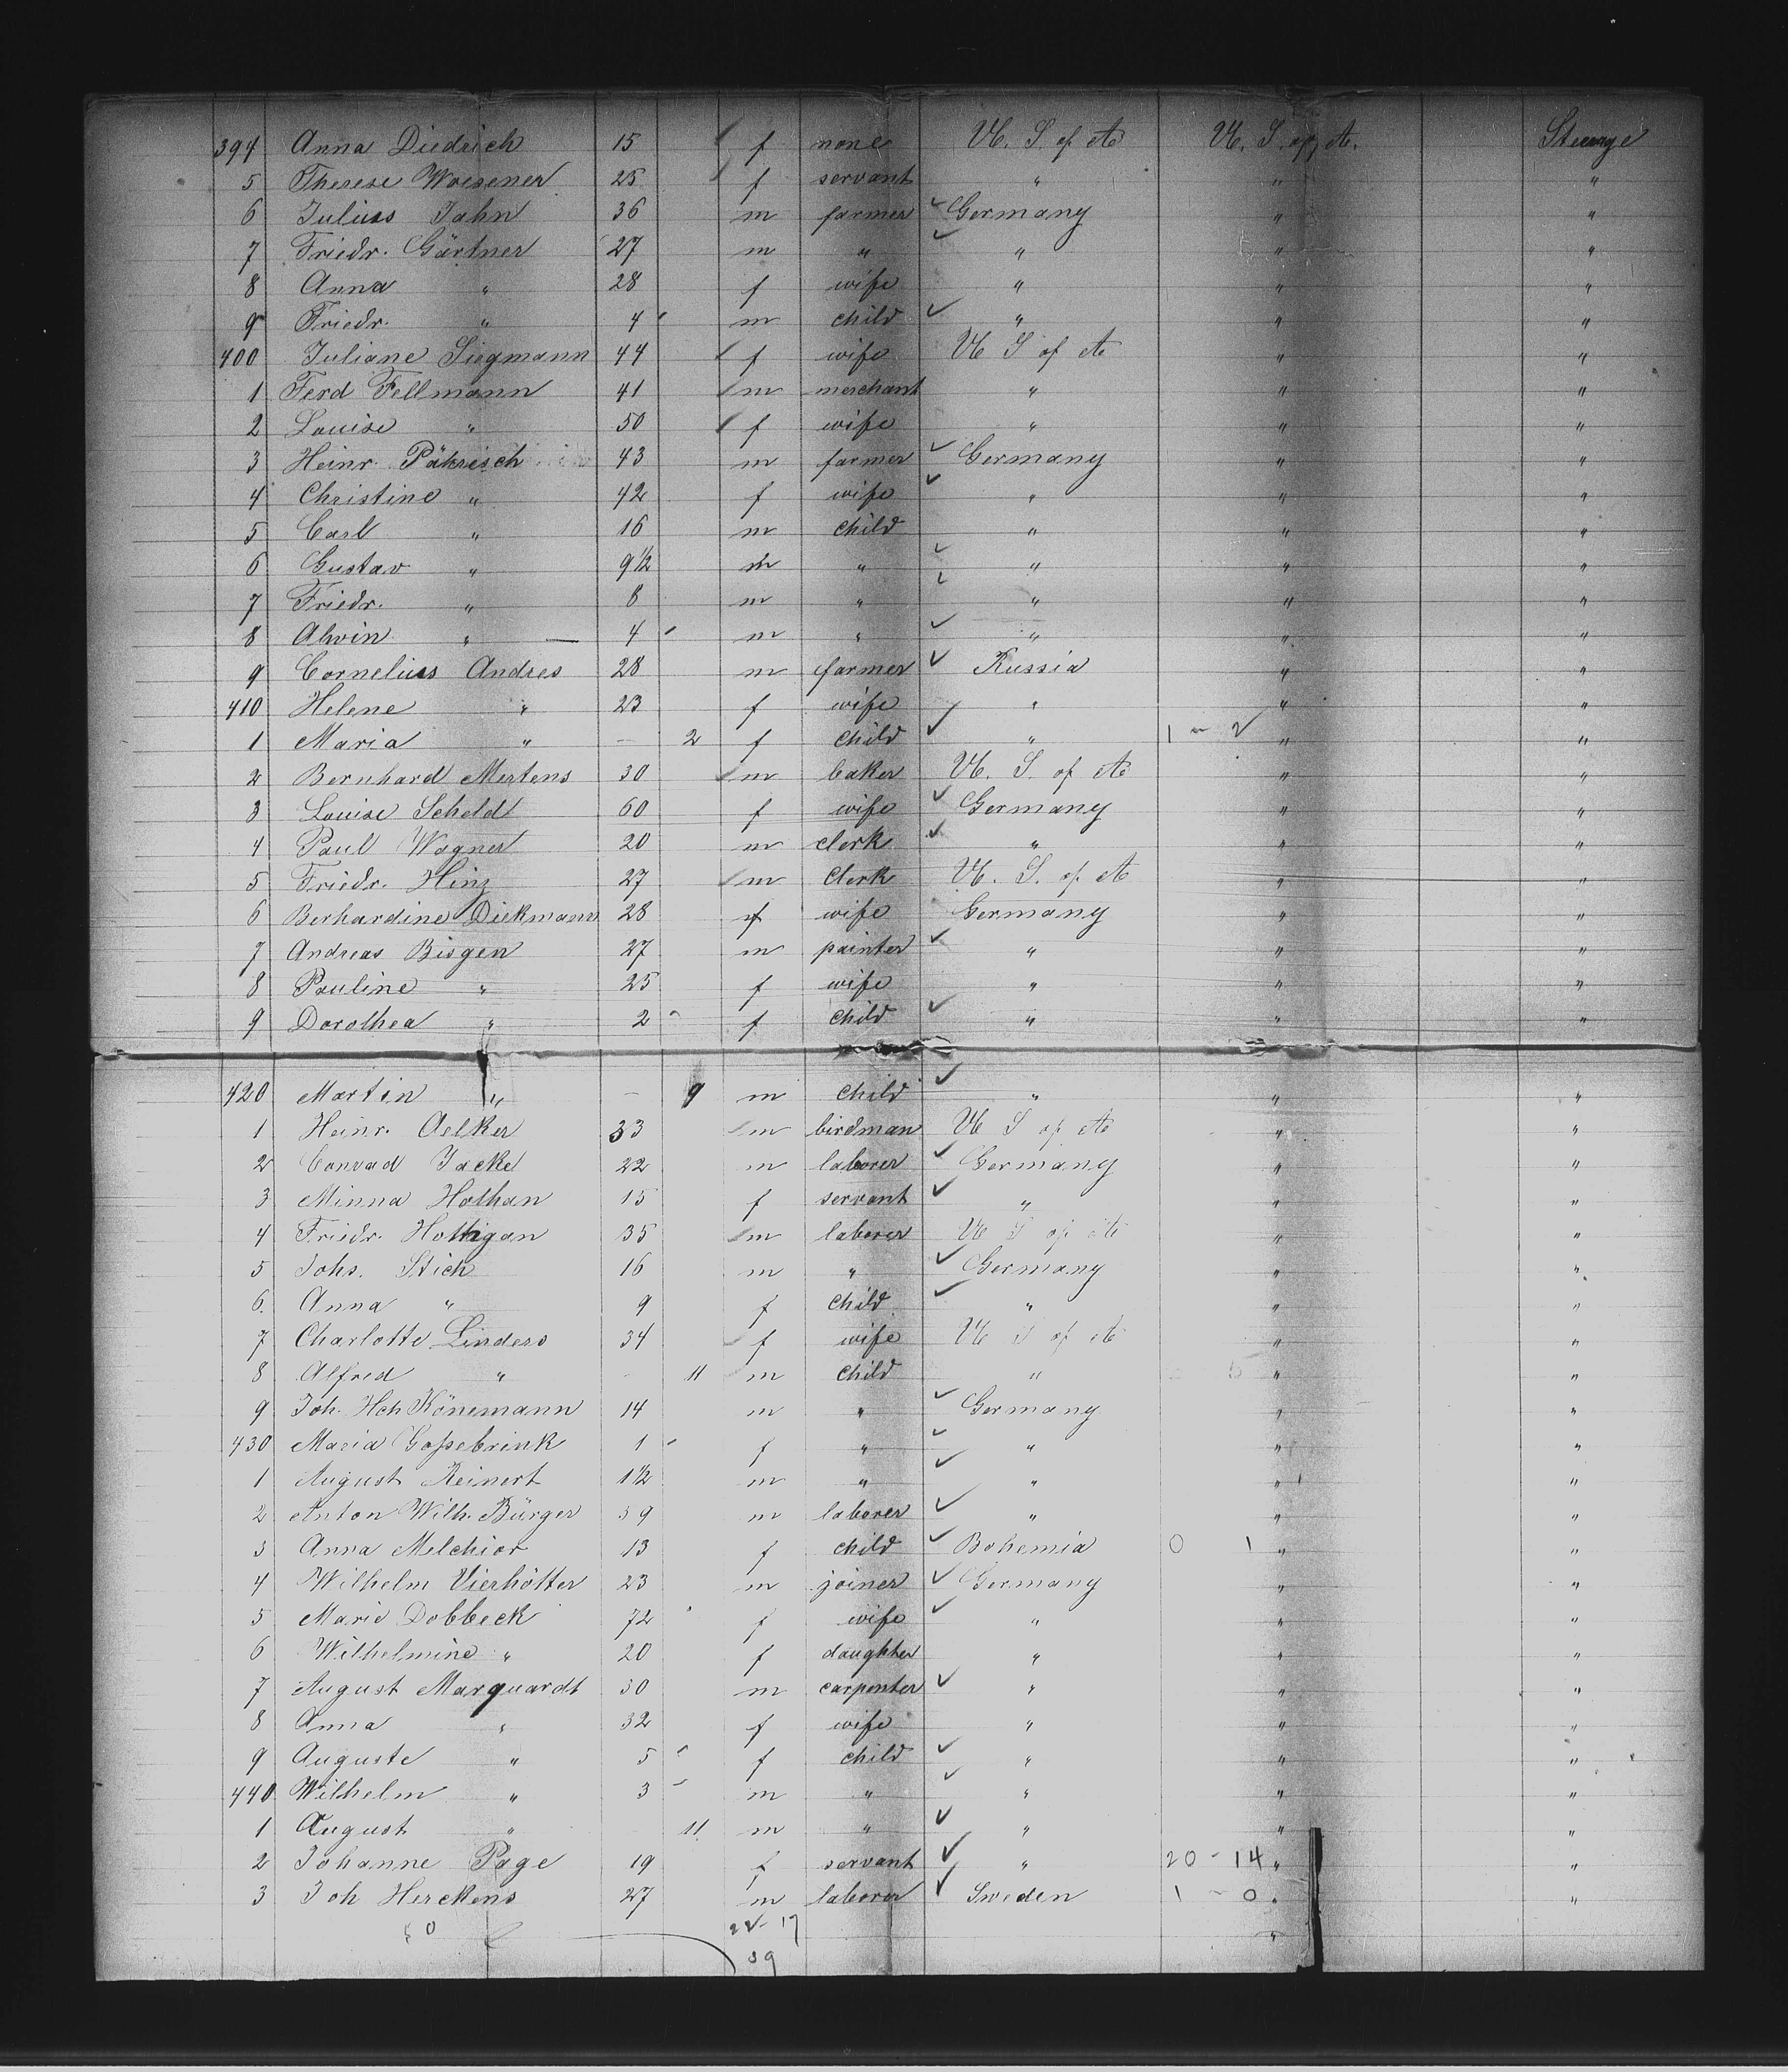 394 Anna Diedrich 15 f none U. S. of A U. S. of A. Steerage
5 Therese Woesener 25 f servant " " "
6 Julius Jahn 36 m farmer Germany " "
7 Friedr. Gärtner 27 m " " " "
8 Anna " 28 f wife " " "
9 Friedr. " 4 m child " " "
400 Juliane Siegmann 44 f wife U S of A " "
1 Ferd Fellmann 41 m merchant " " "
2 Louise " 50 f wife " " "
3 Heinr. Päkrisch 43 m farmer Germany " "
4 Christine " 42 f wife " " "
5 Carl " 16 m child " " "
6 Gustav " 9½ m " " " "
7 Friedr. " 8 m " " " "
8 Alwin " — 4 m " " " "
9 Cornelius Andres 28 m farmer Russia " "
410 Helene " 23 f wife " " "
1 Maria " – 2 f child " 1 – 2 " "
2 Bernhard Mertens 30 m baker U. S. of A " "
3 Louise Scheldt 60 f wife Germany " "
4 Paul Wagner 20 m clerk " " "
5 Friedr. Hinz 27 m clerk U. S. of A " "
6 Berhardine Diekmann 28 f wife Germany " "
7 Andreas Bisgen 27 m painter " " "
8 Pauline " 25 f wife " " "
9 Dorothea " 2 f child " " "
420 Martin " – 9 m child " " "
1 Heinr. Aelker 33 m birdman U S of A " "
2 Conrad Jacke 22 m laborer Germany " "
3 Minna Hothan 15 f servant " " "
4 Friedr. Hottigan 35 m laborer U S of A " "
5 Johs. Stich 16 m " Germany " "
6. Anna " 9 f child " " "
7 Charlotte Linders 34 f wife U S of A " "
8 Alfred " 11 m child " " "
9 Joh. Hch Könemann 14 m " Germany " "
430 Maria Goßebrink 1 f " " " "
1 August Reinert 1½ m " " " "
2 Anton Wilh. Bürger 59 m laborer " " "
3 Anna Melchior 13 f child Bohemia 0 1 " "
4 Wilhelm Vierhötter 23 m joiner Germany " "
5 Marie Dobbeck 72 f wife " " "
6 Wilhelmine " 20 f daughter " " "
7 August Marquardt 30 m carpenter " " "
8 Anna " 32 f wife " " "
9 Auguste " 5 f child " " "
440 Wilhelm " 3 m " " " "
1 August " 11 m " " " "
2 Johanne Page 19 f servant " 20 – 14 " "
3 Joh Herckens 27 m laborer Sweden 1 – 0 " "
22 – 17
39